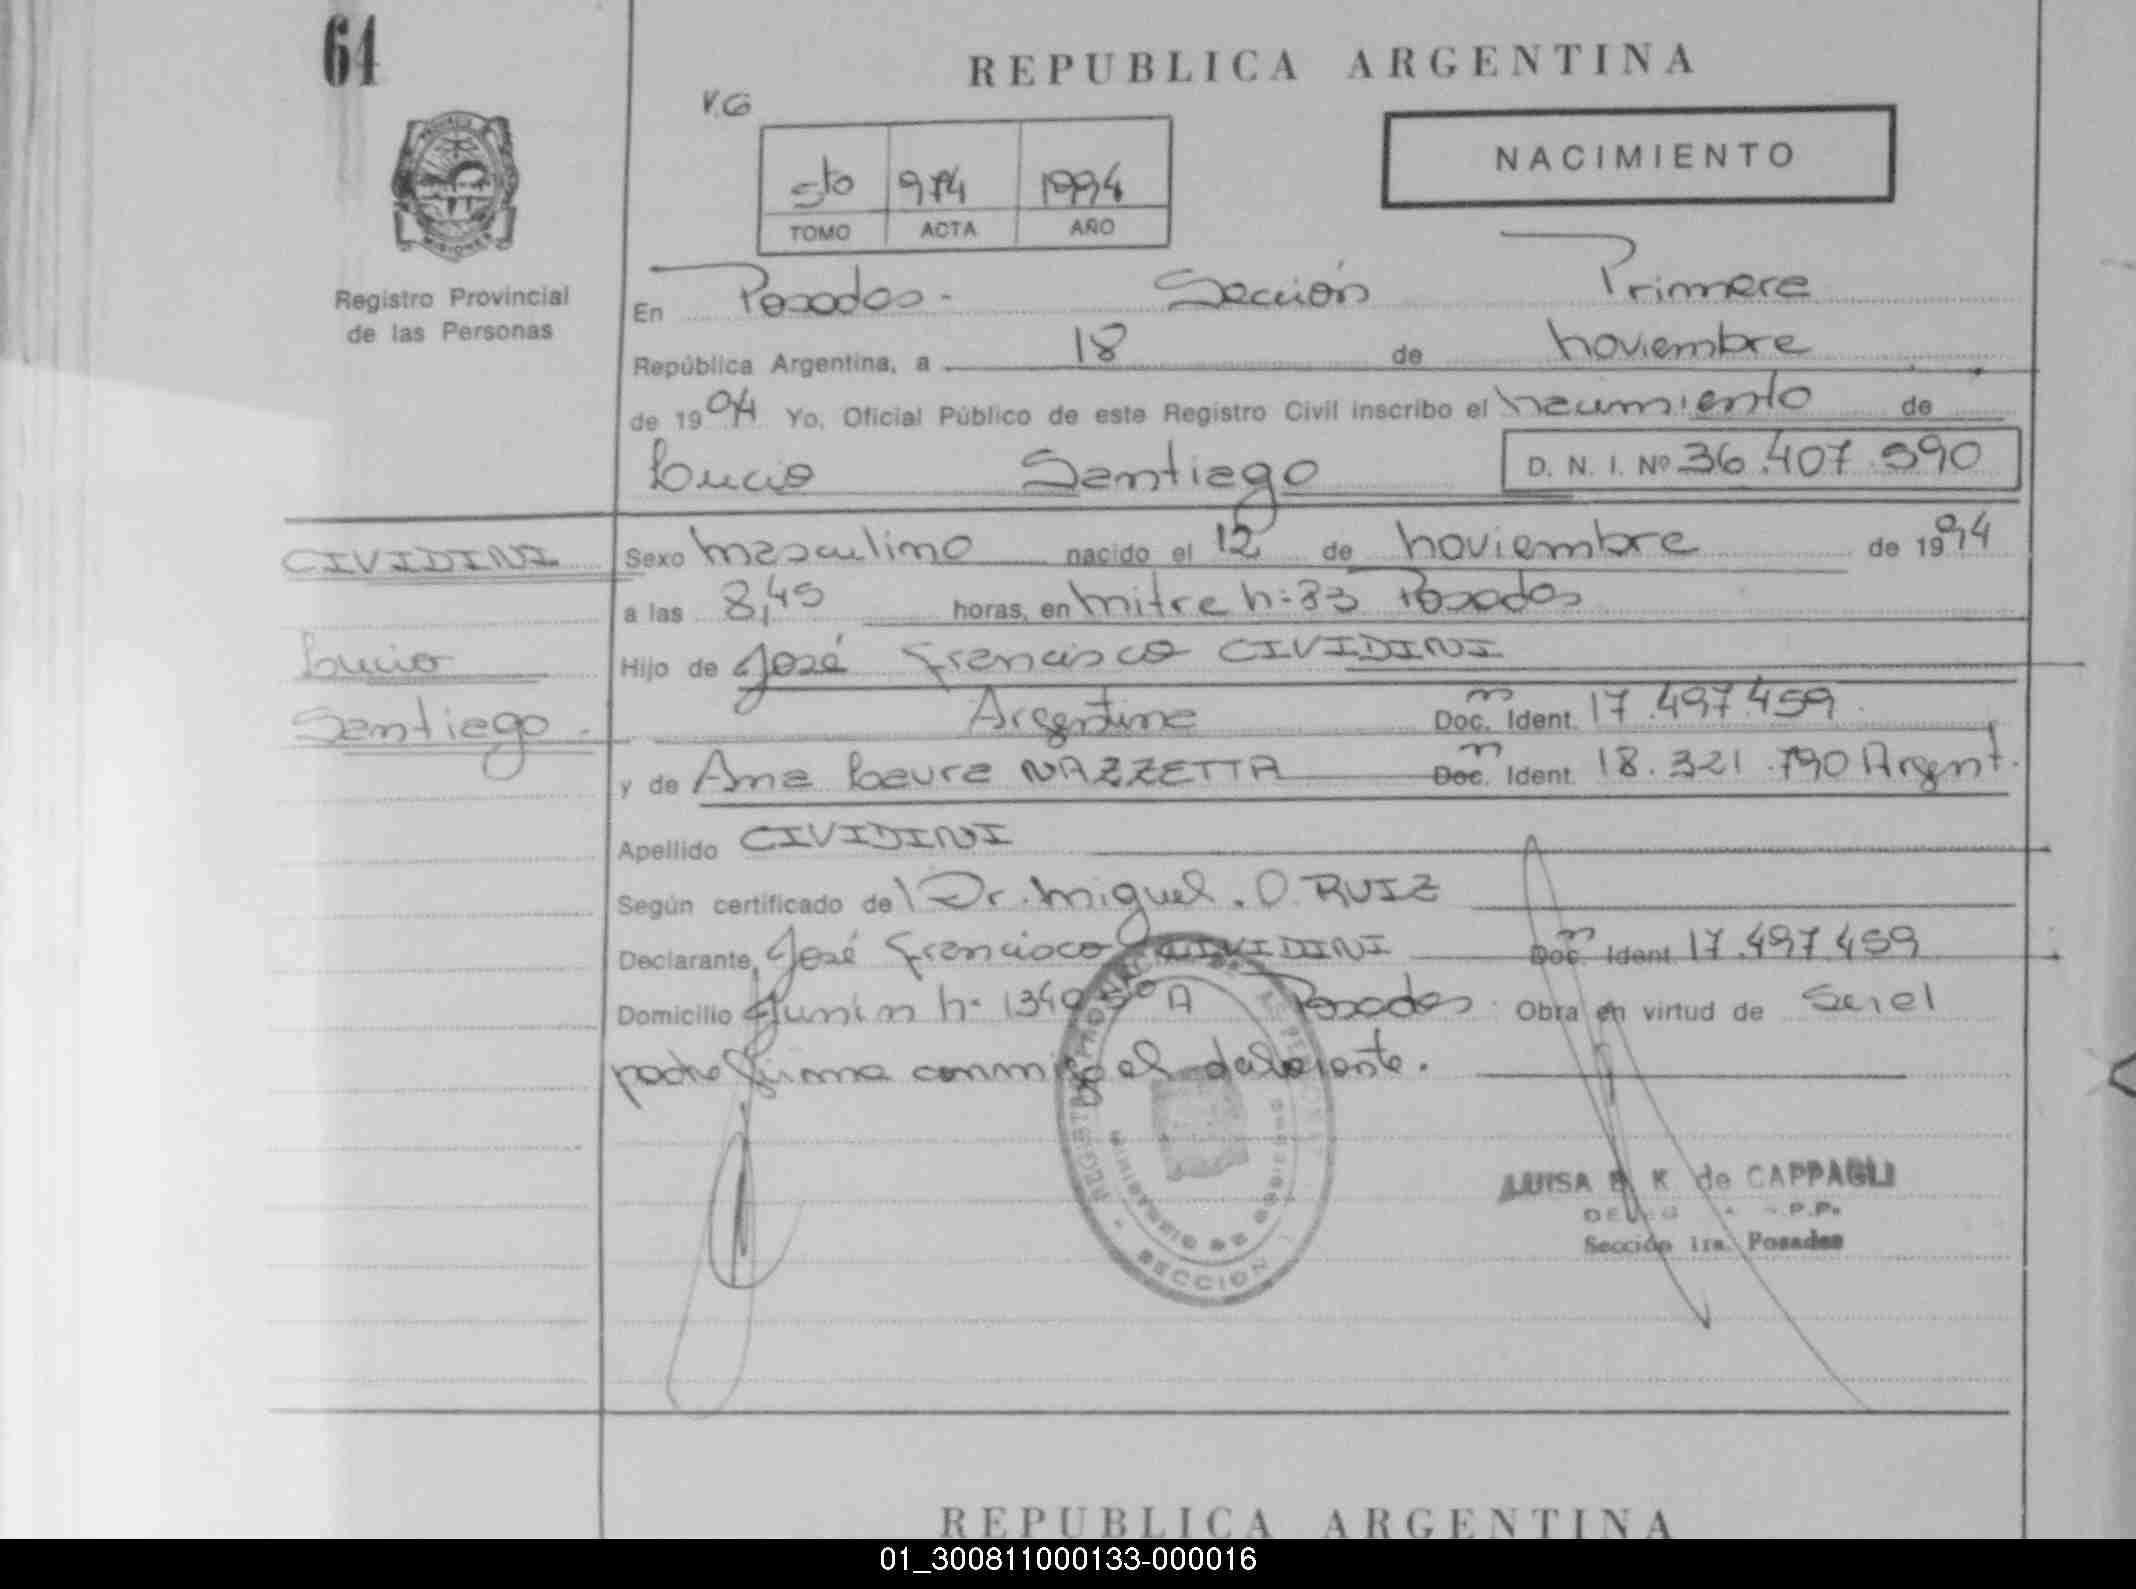 64
REPUBLICA ARGENTINA
V.G
NACIMIENTO
5to 974 1994
TOMO ACTA AÑO
MISIONES
Registro Provincial
de las Personas
En Posadas - Sección Primera
República Argentina, a 18 de noviembre
de 1994 Yo, Oficial Público de este Registro Civil inscribo el nacimiento de
Lucio Santiago D. N. I. Nº 36.407.590
CIVIDINI
Lucio
Santiago.
Sexo masculino nacido el 12 de noviembre de 1994
a las 8,45 horas, en mitre n: 33 Posadas
Hijo de José Francisco CIVIDINI
Argentina Doc. Ident. 17.497.459
y de Ana Laura NAZZETTA Doc. Ident. 18.321.790 Argent.
Apellido CIVIDINI
Según certificado de Dr. Miguel. O. RUIZ
Declarante José Francisco CIVIDINI Doc. Ident. 17.497.459
Domicilio Junín n: 1349 A Posadas Obra en virtud de Ser el
padre firma conmigo el declarante.
SECCION
LUISA K de CAPPAGLI
Sección 1ra. Posadas
REPUBLICA ARGENTINA
01_300811000133-000016